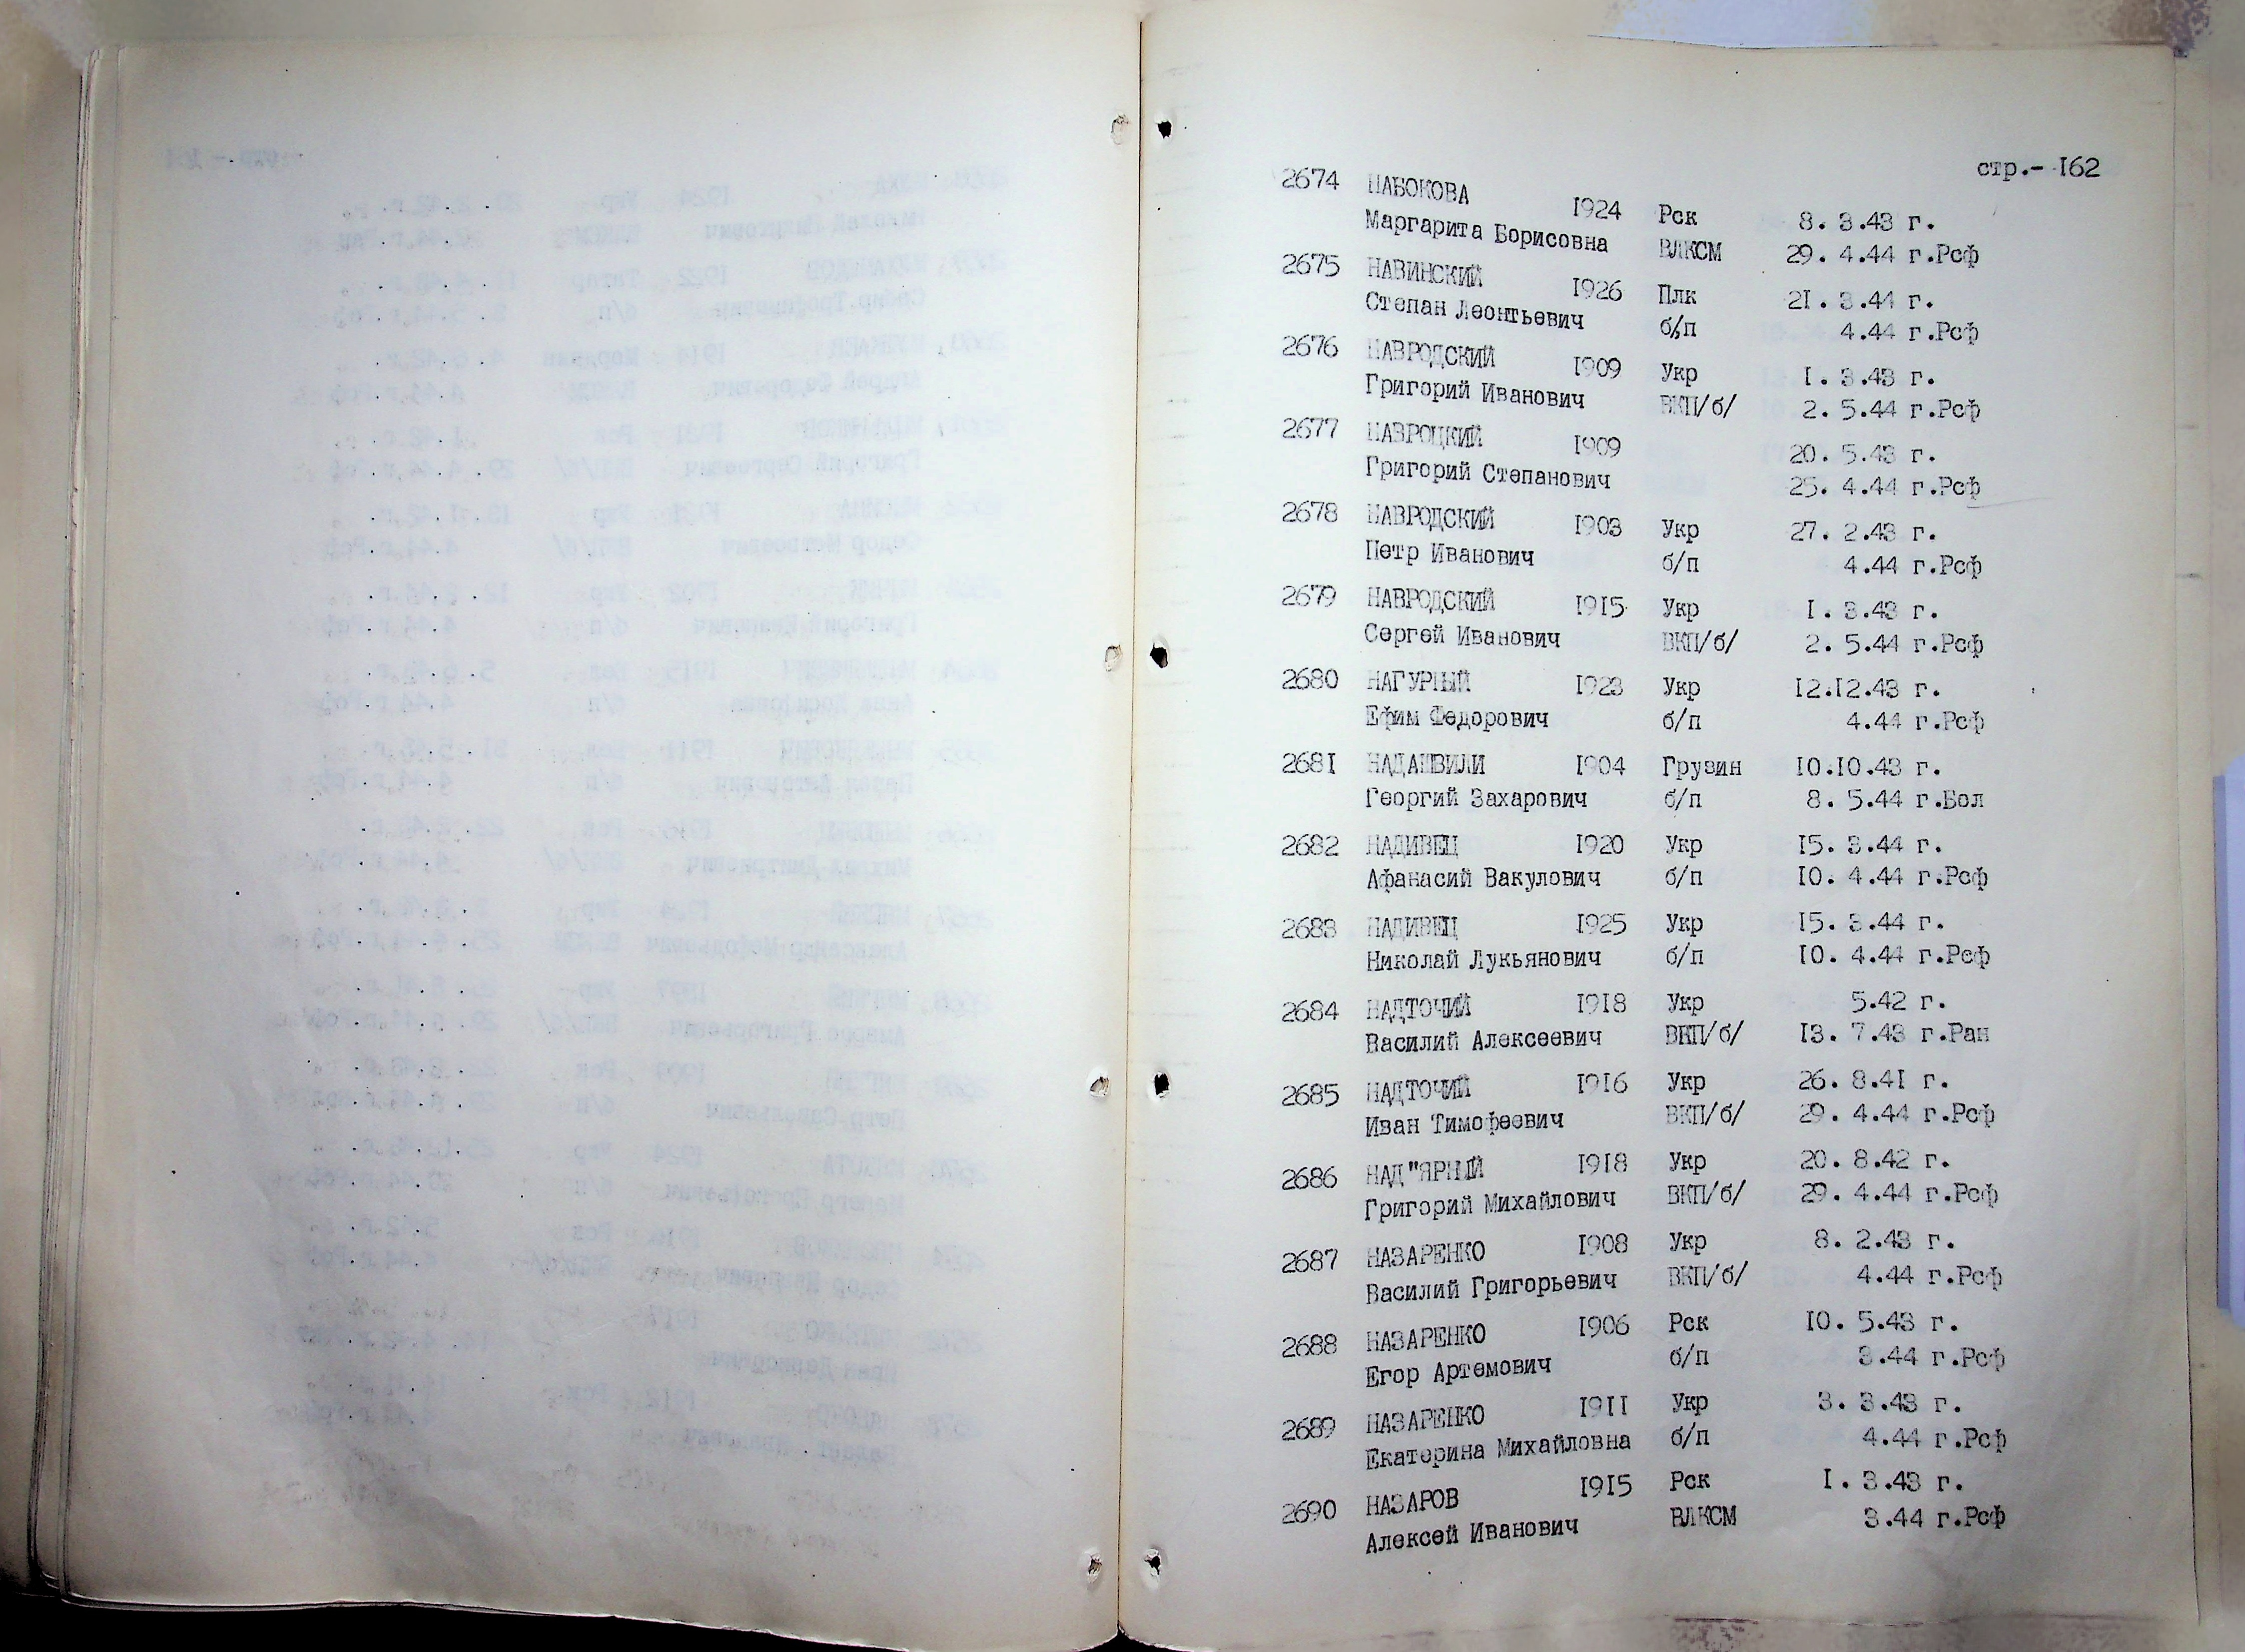 стр.- 162
2674 НАБОКОВА 1924 Рск 8. 3.43 г.
Маргарита Борисовна ВЛКСМ 29. 4.44 г.Рсф
2675 НАВИНСКИЙ 1926 Плк 21. 3.44 г.
Степан Леонтьевич б/п 4.44 г.Рсф
2676 НАВРОДСКИЙ 1909 Укр 1. 3.43 г.
Григорий Иванович ВКП/б/ 2. 5.44 г.Рсф
2677 НАВРОЦКИЙ 1909 20. 5.43 г.
Григорий Степанович 25. 4.44 г.Рсф
2678 НАВРОДСКИЙ 1903 Укр 27. 2.43 г.
Петр Иванович б/п 4.44 г.Рсф
2679 НАВРОДСКИЙ 1915 Укр 1. 3.43 г.
Сергей Иванович ВКП/б/ 2. 5.44 г.Рсф
2680 НАГУРНЫЙ 1923 Укр 12.12.43 г.
Ефим Федорович б/п 4.44 г.Рсф
2681 НАДАШВИЛИ 1904 Грузин 10.10.43 г.
Георгий Захарович б/п 8. 5.44 г.Бол
2682 НАДИВЕЦ 1920 Укр 15. 3.44 г.
Афанасий Вакулович б/п 10. 4.44 г.Рсф
2683 НАДИВЕЦ 1925 Укр 15. 3.44 г.
Николай Лукьянович б/п 10. 4.44 г.Рсф
2684 НАДТОЧИЙ 1918 Укр 5.42 г.
Василий Алексеевич ВКП/б/ 13. 7.43 г.Ран
2685 НАДТОЧИЙ 1916 Укр 26. 8.41 г.
Иван Тимофеевич ВКП/б/ 29. 4.44 г.Рсф
2686 НАД"ЯРНЫЙ 1918 Укр 20. 8.42 г.
Григорий Михайлович ВКП/б/ 29. 4.44 г.Рсф
2687 НАЗАРЕНКО 1908 Укр 8. 2.43 г.
Василий Григорьевич ВКП/б/ 4.44 г.Рсф
2688 НАЗАРЕНКО 1906 Рск 10. 5.43 г.
Егор Артемович б/п 3.44 г.Рсф
2689 НАЗАРЕНКО 1911 Укр 3. 3.43 г.
Екатерина Михайловна б/п 4.44 г.Рсф
2690 НАЗАРОВ 1915 Рск 1. 3.43 г.
Алексей Иванович ВЛКСМ 3.44 г.Рсф